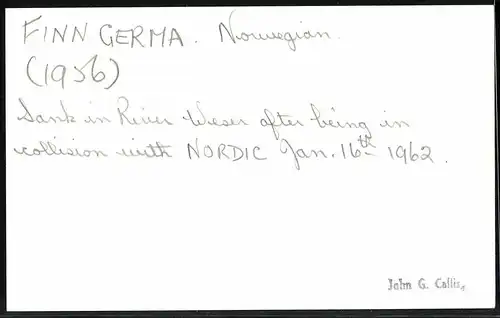 FINN GERMA. Norwegian.
(1956)
Sank in River Weser after being in
collision with NORDIC Jan. 16th 1962.
John G. Callis.